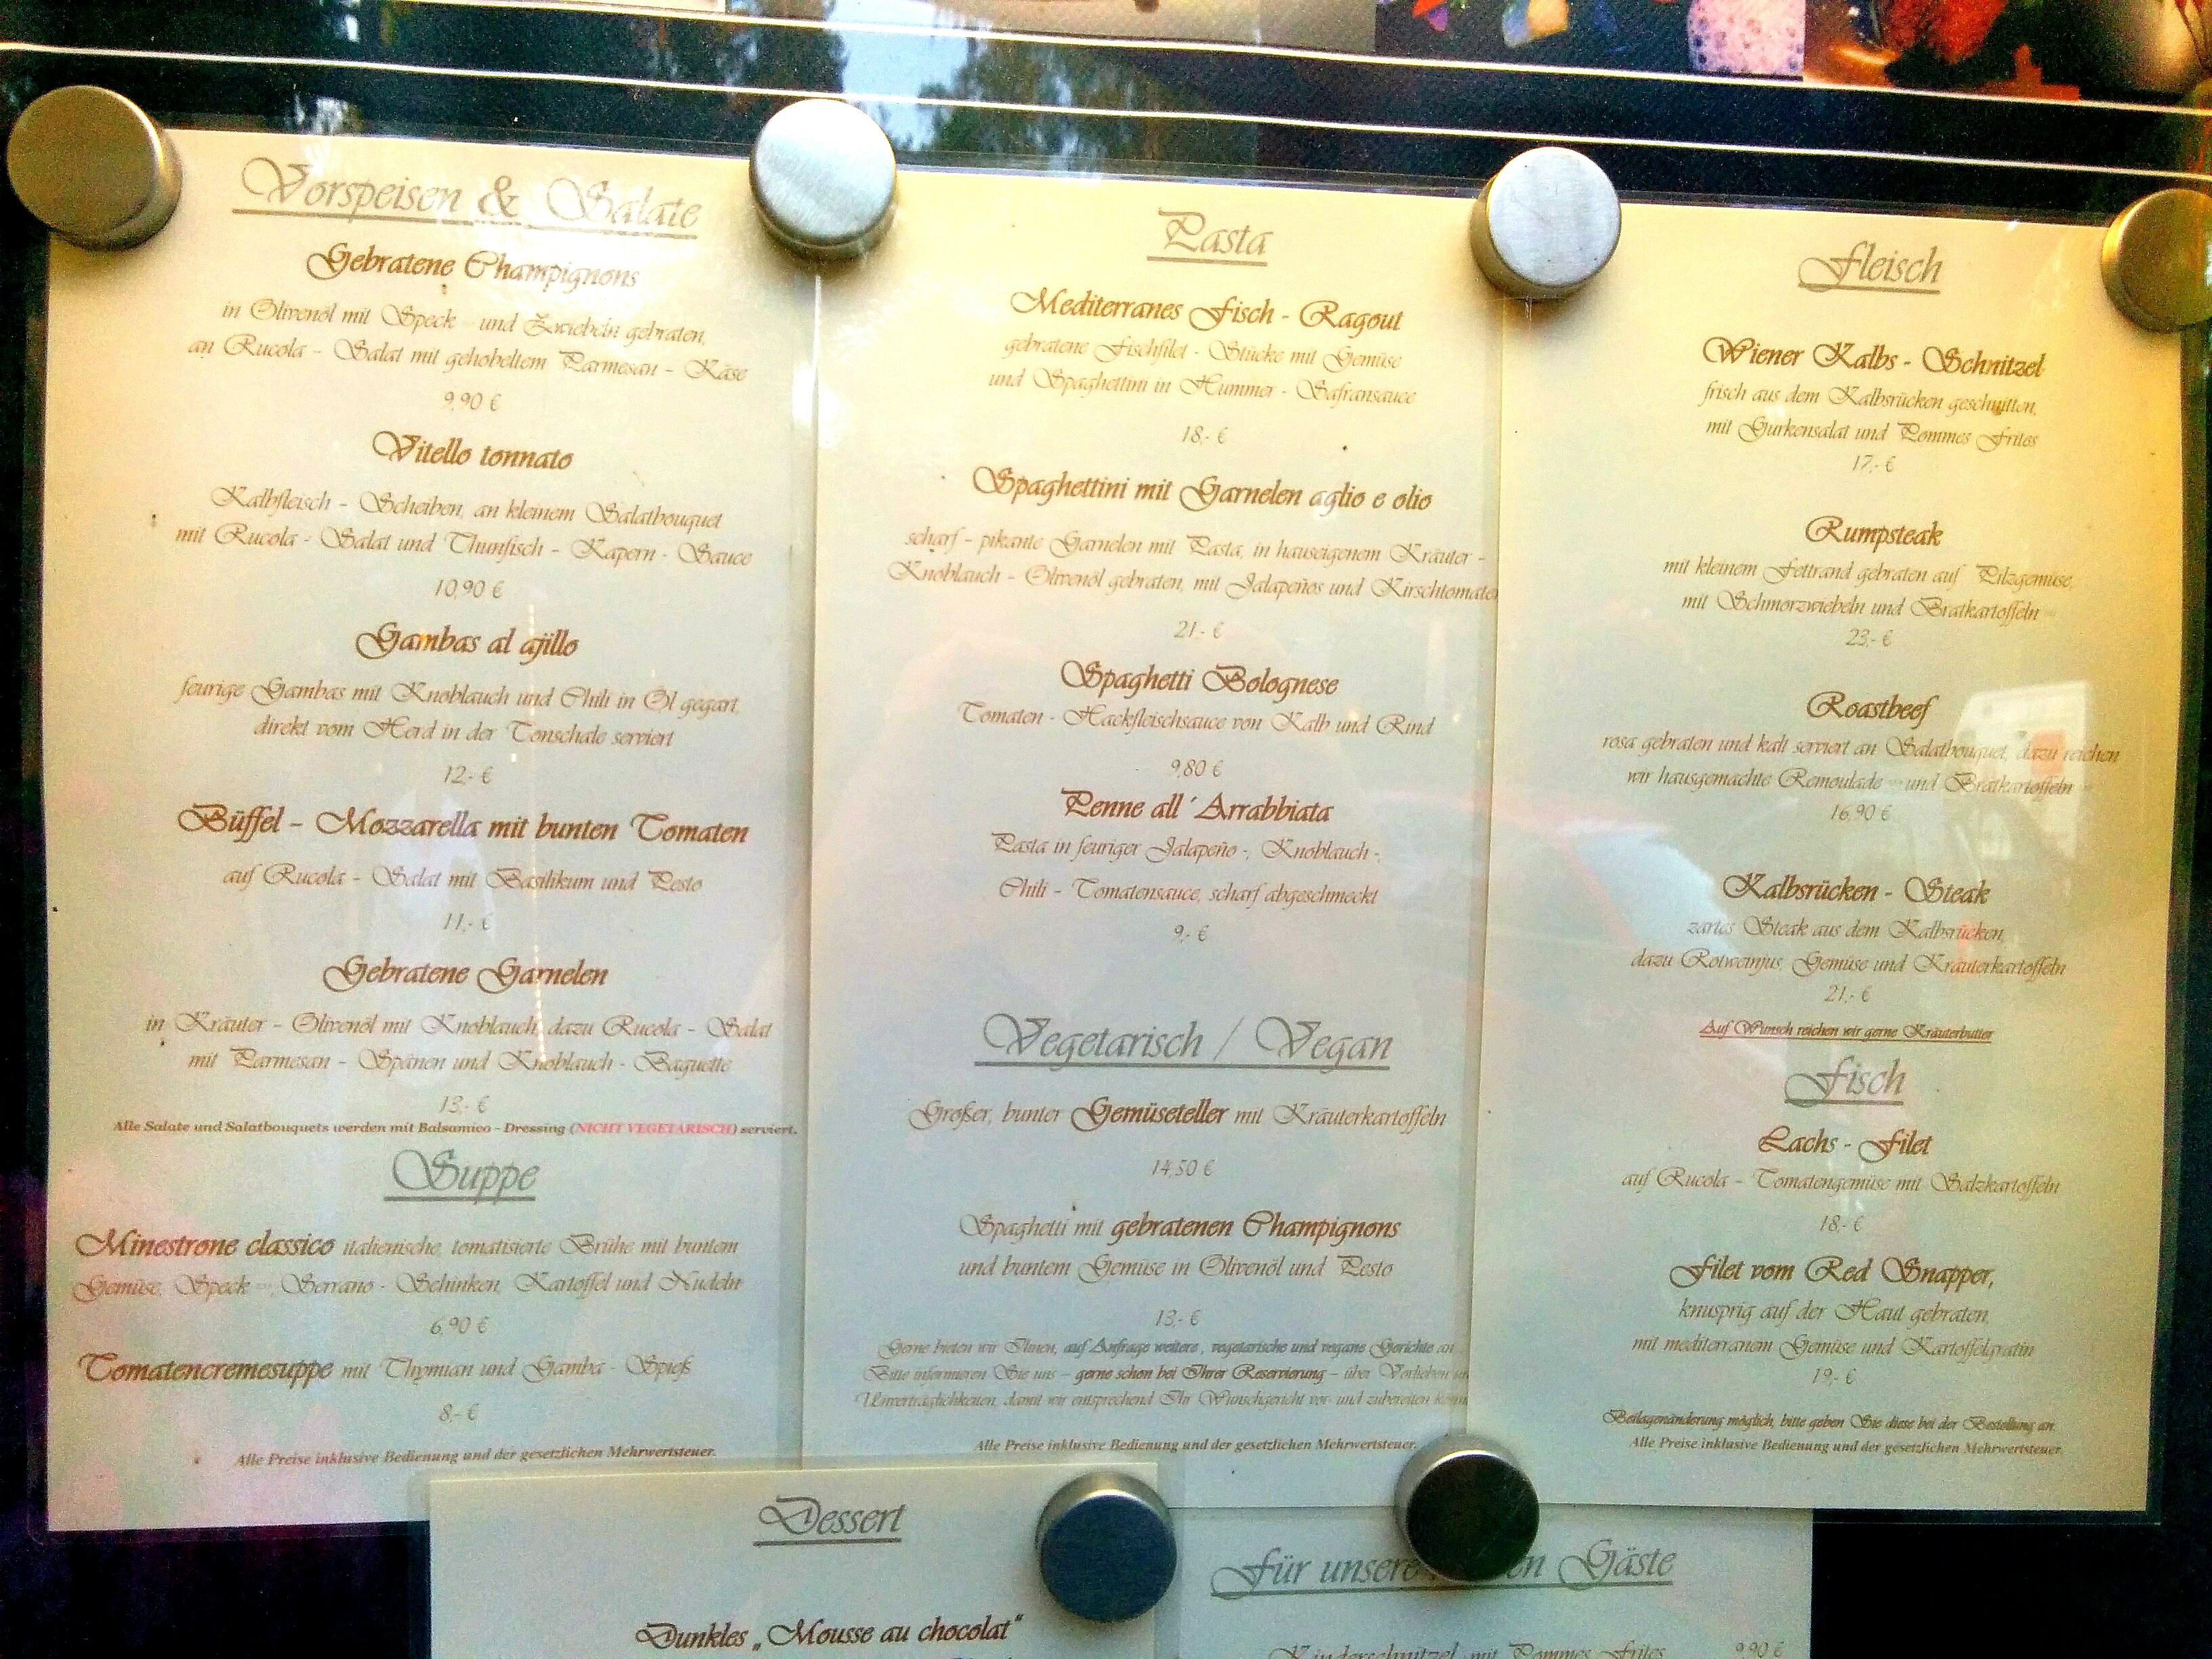 Vorspeisen & Salate
Gebratene Champignons
in Olivenöl mit Speck und Zwiebeln gebraten,
an Rucola - Salat mit gehobeltem Parmesan - Käse
9,90 €
Vitello tonnato
Kalbfleisch - Scheiben, an kleinem Salatbouquet
mit Rucola - Salat und Thunfisch - Kapern - Sauce
10,90 €
Gambas al ajillo
feurige Gambas mit Knoblauch und Chili in Öl gegart,
direkt vom Herd in der Tonschale serviert
12,- €
Büffel - Mozzarella mit bunten Tomaten
auf Rucola - Salat mit Basilikum und Pesto
11,- €
Gebratene Garnelen
in Kräuter - Olivenöl mit Knoblauch, dazu Rucola - Salat
mit Parmesan - Spänen und Knoblauch - Baguette
13,- €
Alle Salate und Salatbouquets werden mit Balsamico - Dressing (NICHT VEGETARISCH) serviert.
Suppe
Minestrone classico italienische, tomatisierte Brühe mit buntem
Gemüse, Speck, Serrano - Schinken, Kartoffel und Nudeln
6,90 €
Tomatencremesuppe mit Thymian und Gamba - Spieß
8,- €
Alle Preise inklusive Bedienung und der gesetzlichen Mehrwertsteuer.
Pasta
Mediterranes Fisch - Ragout
gebratene Fischfilet - Stücke mit Gemüse
und Spaghettini in Hummer - Safransauce
18,- €
Spaghettini mit Garnelen aglio e olio
scharf - pikante Garnelen mit Pasta, in hauseigenem Kräuter -
Knoblauch - Olivenöl gebraten, mit Jalapeños und Kirschtomaten
21,- €
Spaghetti Bolognese
Tomaten - Hackfleischsauce von Kalb und Rind
9,80 €
Penne all´Arrabbiata
Pasta in feuriger Jalapeño -, Knoblauch -,
Chili - Tomatensauce, scharf abgeschmeckt
9,- €
Vegetarisch / Vegan
Großer, bunter Gemüseteller mit Kräuterkartoffeln
14,50 €
Spaghetti mit gebratenen Champignons
und buntem Gemüse in Olivenöl und Pesto
13,- €
Gerne bieten wir Ihnen, auf Anfrage weitere, vegetarische und vegane Gerichte an.
Bitte informieren Sie uns - gerne schon bei Ihrer Reservierung - über Vorlieben
Unverträglichkeiten, damit wir entsprechend Ihr Wunschgericht vor- und zubereiten
Alle Preise inklusive Bedienung und der gesetzlichen Mehrwertsteuer.
Fleisch
Wiener Kalbs - Schnitzel
frisch aus dem Kalbsrücken geschnitten,
mit Gurkensalat und Pommes Frites
17,- €
Rumpsteak
mit kleinem Fettrand gebraten auf Pilzgemüse,
mit Schmorzwiebeln und Bratkartoffeln
23,- €
Roastbeef
rosa gebraten und kalt serviert an Salatbouquet, dazu reichen
wir hausgemachte Remoulade und Bratkartoffeln
16,90 €
Kalbsrücken - Steak
zartes Steak aus dem Kalbsrücken,
dazu Rotweinjus, Gemüse und Kräuterkartoffeln
21,- €
Auf Wunsch reichen wir gerne Kräuterbutter
Fisch
Lachs - Filet
auf Rucola - Tomatengemüse mit Salzkartoffeln
18,- €
Filet vom Red Snapper,
knusprig auf der Haut gebraten,
mit mediterranem Gemüse und Kartoffelgratin
19,- €
Beilagenänderung möglich, bitte geben Sie diese bei der Bestellung an.
Alle Preise inklusive Bedienung und der gesetzlichen Mehrwertsteuer.
Dessert
Dunkles „Mousse au chocolat“
Für unsere Gäste
Kinderschnitzel mit Pommes Frites 9,90 €